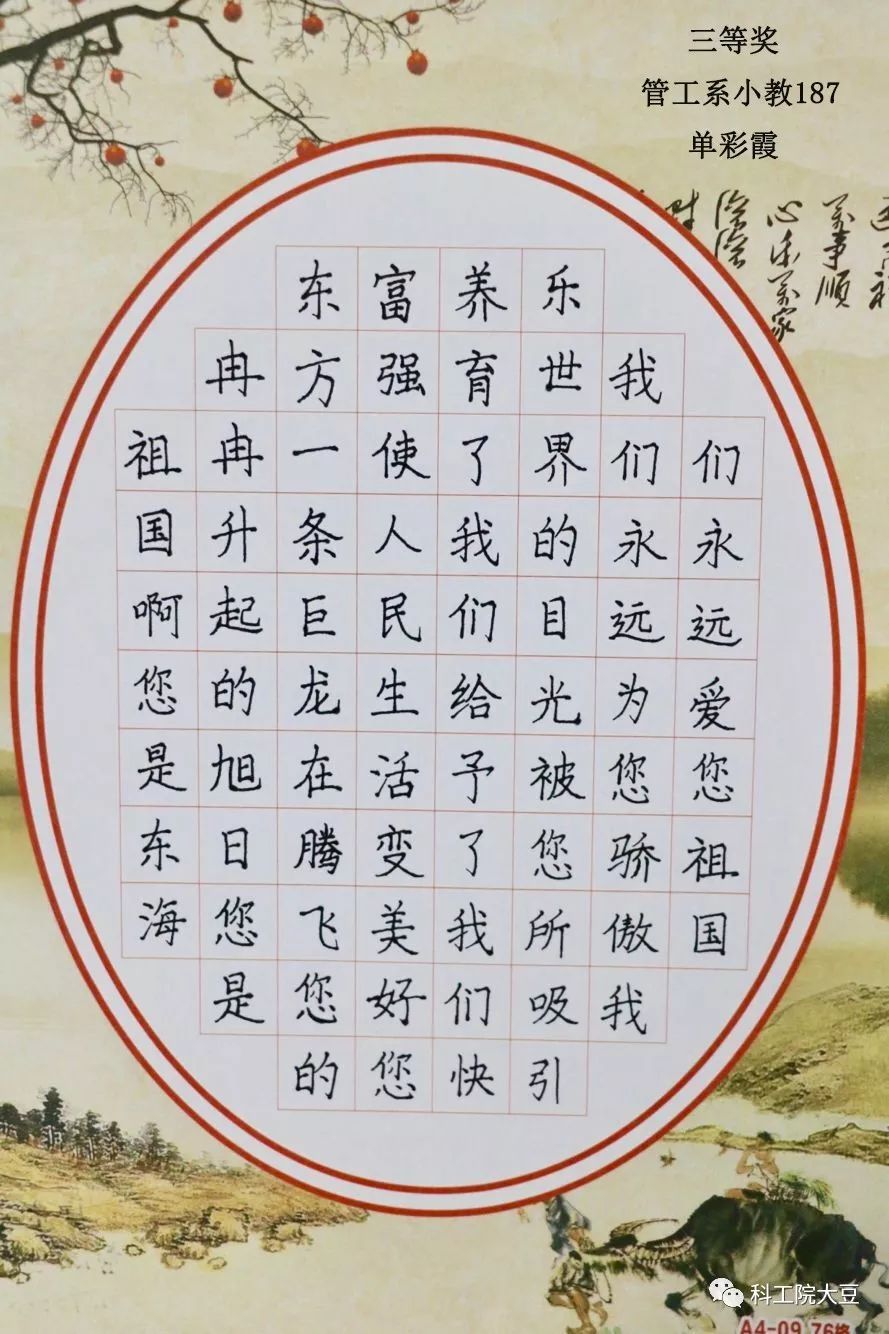 三等奖
管工系小教187
单彩霞
祖国啊您是东海
冉冉升起的旭日您是
东方一条巨龙在腾飞您的
富强使人民生活变美好您
养育了我们给予了我们快
乐世界的目光被您所吸引
我们永远为您骄傲我
们永远爱您祖国
科工院大豆
A4-09 76格